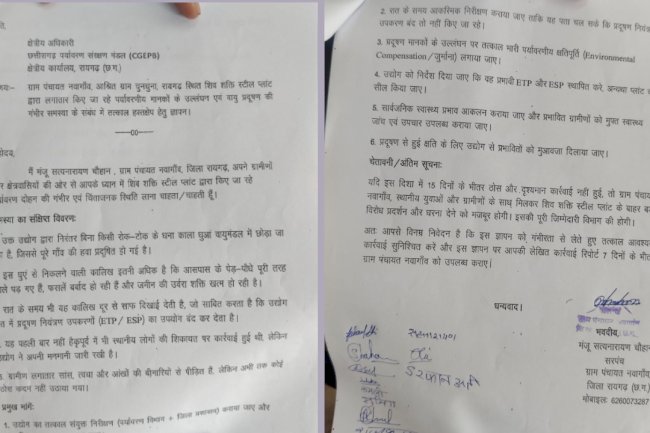 क्षेत्रीय अधिकारी
छत्तीसगढ़ पर्यावरण संरक्षण मंडल (CGEPB)
क्षेत्रीय कार्यालय, रायगढ़ (छ.ग.)
ग्राम पंचायत नवागाँव, आश्रित ग्राम चुनचुना, रायगढ़ स्थित शिव शक्ति स्टील प्लांट
द्वारा लगातार किए जा रहे पर्यावरणीय मानकों के उल्लंघन एवं वायु प्रदूषण की
गंभीर समस्या के संबंध में तत्काल हस्तक्षेप हेतु ज्ञापन।
—00—
होदय,
मैं मंजू सत्यनारायण चौहान , ग्राम पंचायत नवागाँव, जिला रायगढ़, अपने ग्रामीणों
क्षेत्रवासियों की ओर से आपके ध्यान में शिव शक्ति स्टील प्लांट द्वारा किए जा रहे
र्यावरण दोहन की गंभीर एवं चिंताजनक स्थिति लाना चाहता/चाहती हूँ।
स्या का संक्षिप्त विवरण:
उक्त उद्योग द्वारा निरंतर बिना किसी रोक-टोक के घना काला धुआ वायुमंडल में छोड़ा जा
है, जिससे पूरे गाँव की हवा प्रदूषित हो गई है।
इस धुएं से निकलने वाली कालिख इतनी अधिक है कि आसपास के पेड़-पौधे पूरी तरह
ले पड़ गए हैं, फसलें बर्बाद हो रही हैं और जमीन की उर्वरा शक्ति खत्म हो रही है।
रात के समय भी यह कालिख दूर से साफ दिखाई देती है, जो साबित करता है कि उद्योग
त में प्रदूषण नियंत्रण उपकरणों (ETP / ESP) का उपयोग बंद कर देता है।
यह पहली बार नहीं है पूर्व में भी स्थानीय लोगों की शिकायत पर कार्रवाई हुई थी, लेकिन
उद्योग ने अपनी मनमानी जारी रखी है।
ग्रामीण लगातार सांस, त्वचा और आंखों की बीमारियों से पीड़ित है, लेकिन अभी तक कोई
ठोस कदम नहीं उठाया गया।
प्रमुख मांगें:
1. उद्योग का तत्काल संयुक्त निरीक्षण (पर्यावरण विभाग + जिला प्रशासन) कराया जाए और
2. रात के समय आकस्मिक निरीक्षण कराया जाए ताकि यह पता चल सके कि प्रदूषण नियंत्र
उपकरण बंद तो नहीं किए जा रहे।
3. प्रदूषण मानकों के उल्लंघन पर तत्काल भारी पर्यावरणीय क्षतिपूर्ति (Environmental
Compensation/जुर्माना) लगाया जाए।
4. उद्योग को निर्देश दिया जाए कि वह प्रभावी ETP और ESP स्थापित करे, अन्यथा प्लांट
सील किया जाए।
5. सार्वजनिक स्वास्थ्य प्रभाव आकलन कराया जाए और प्रभावित ग्रामीणों को मुफ्त स्वास्थ्य
जांच एवं उपचार उपलब्ध कराया जाए।
6. प्रदूषण से हुई क्षति के लिए उद्योग से प्रभावितों को मुआवजा दिलाया जाए।
चेतावनी/अंतिम सूचना:
यदि इस दिशा में 15 दिनों के भीतर ठोस और दृश्यमान कार्रवाई नहीं हुई, तो ग्राम पंचाय
नवागाँव, स्थानीय युवाओं और ग्रामीणों के साथ मिलकर शिव शक्ति स्टील प्लांट के बाहर
विरोध प्रदर्शन और धरना देने को मजबूर होगी। इसकी पूरी जिम्मेदारी विभाग की होगी।
अतः आपसे विनम्र निवेदन है कि इस ज्ञापन को गंभीरता से लेते हुए तत्काल आवश्य
कार्रवाई सुनिश्चित करें और इस ज्ञापन पर आपकी लेखित कार्रवाई रिपोर्ट 7 दिनों के भीत
ग्राम पंचायत नवागाँव को उपलब्ध कराएं।
धन्यवाद।
भवदीय,
मंजू सत्यनारायण चौहान
सरपंच
ग्राम पंचायत नवागाँव
जिला रायगढ़ (छ.ग.)
मोबाइल: 6260073287